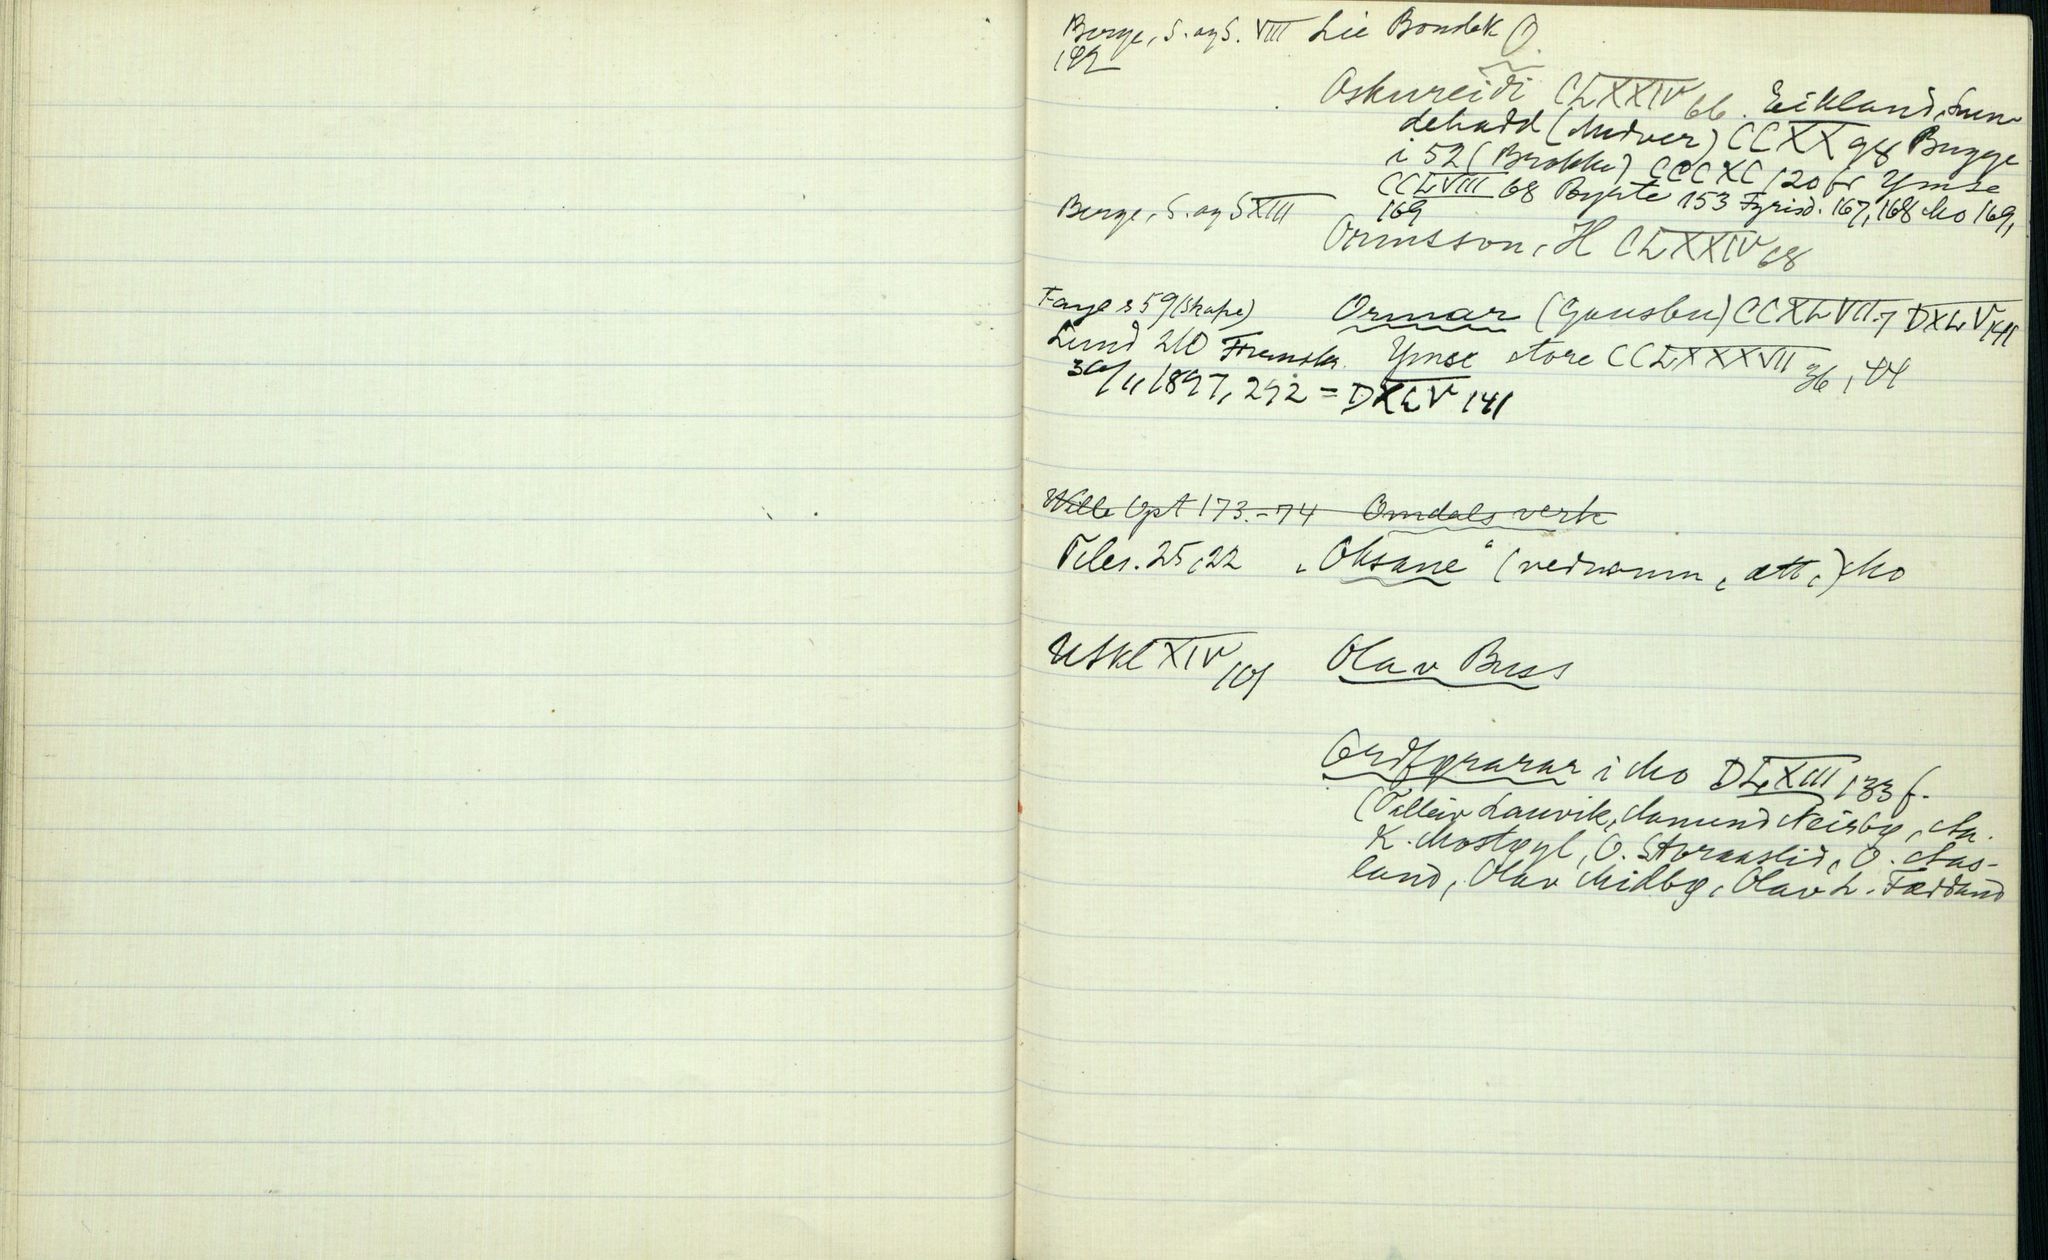 Berge, S. og S. VIII Lie Bondek O.
Oskureidi CLXXIV 66. Eikland, Sun-
delradd CCXX 98 Bugge
i 52 (Brokke) CCCXC 120 fr Ymse
CCLVIII 68 Bykle 153 Fyrisd. 167, 168 Mo 169,
Berge, S. og S XIII 169
Ormsson, H CLXXIV 68
Faye s 59 (Skafse) Ormar (Gausbu) CCXLVII 7 DXLV 141
Lund 210 Framsk. Ymse store CCLXXXVII 36, 44
30/11 1897, 292 = DXLV 141
Wille Opt 173-74 Omdals verk
Teles. 25, 22 „Oksane“ (vednamn, ætt,) Mo
USkl XIV 101 Olav Buss
Ordførarar i Mo DLXIII 133 f.
(Talleiv Lauvik, Aamund Neirbø, An.
K. Mostøyl, O. Storaaslid, O. Aas-
land, Olav Midbø, Olav L. Fædland